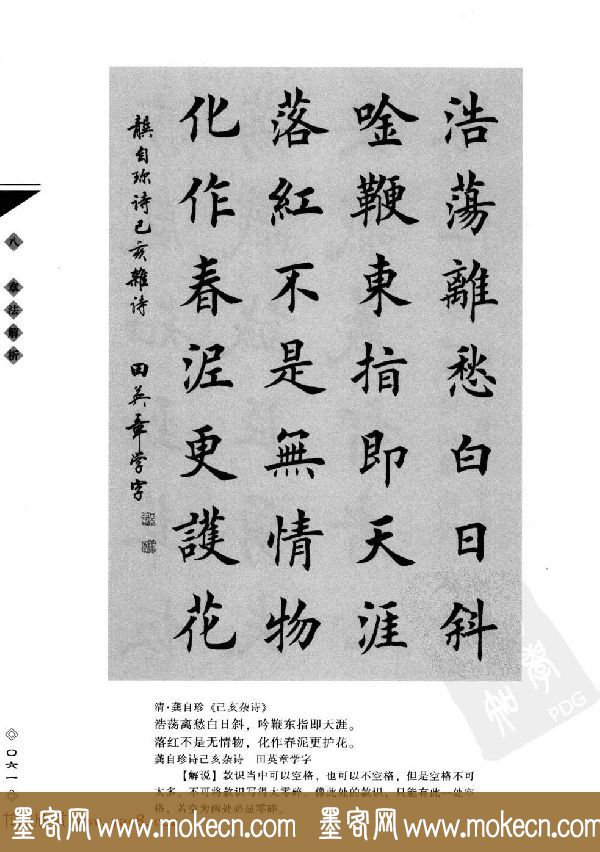 浩蕩離愁白日斜
唫鞭東指即天涯
落紅不是無情物
化作春泥更護花
龔自珍诗己亥雜诗 田英章学字
八 章法解析
清·龚自珍《己亥杂诗》
浩荡离愁白日斜，吟鞭东指即天涯。
落红不是无情物，化作春泥更护花。
龚自珍诗己亥杂诗 田英章学字
【解说】款识当中可以空格，也可以不空格，但是空格不可
太多，不可将款识写得太零碎。像此处的款识，只能有此一处空
格，若空为两处必显零碎。
〇六一
PDG
墨客网 www.mokecn.com 墨客网 www.mokecn.com